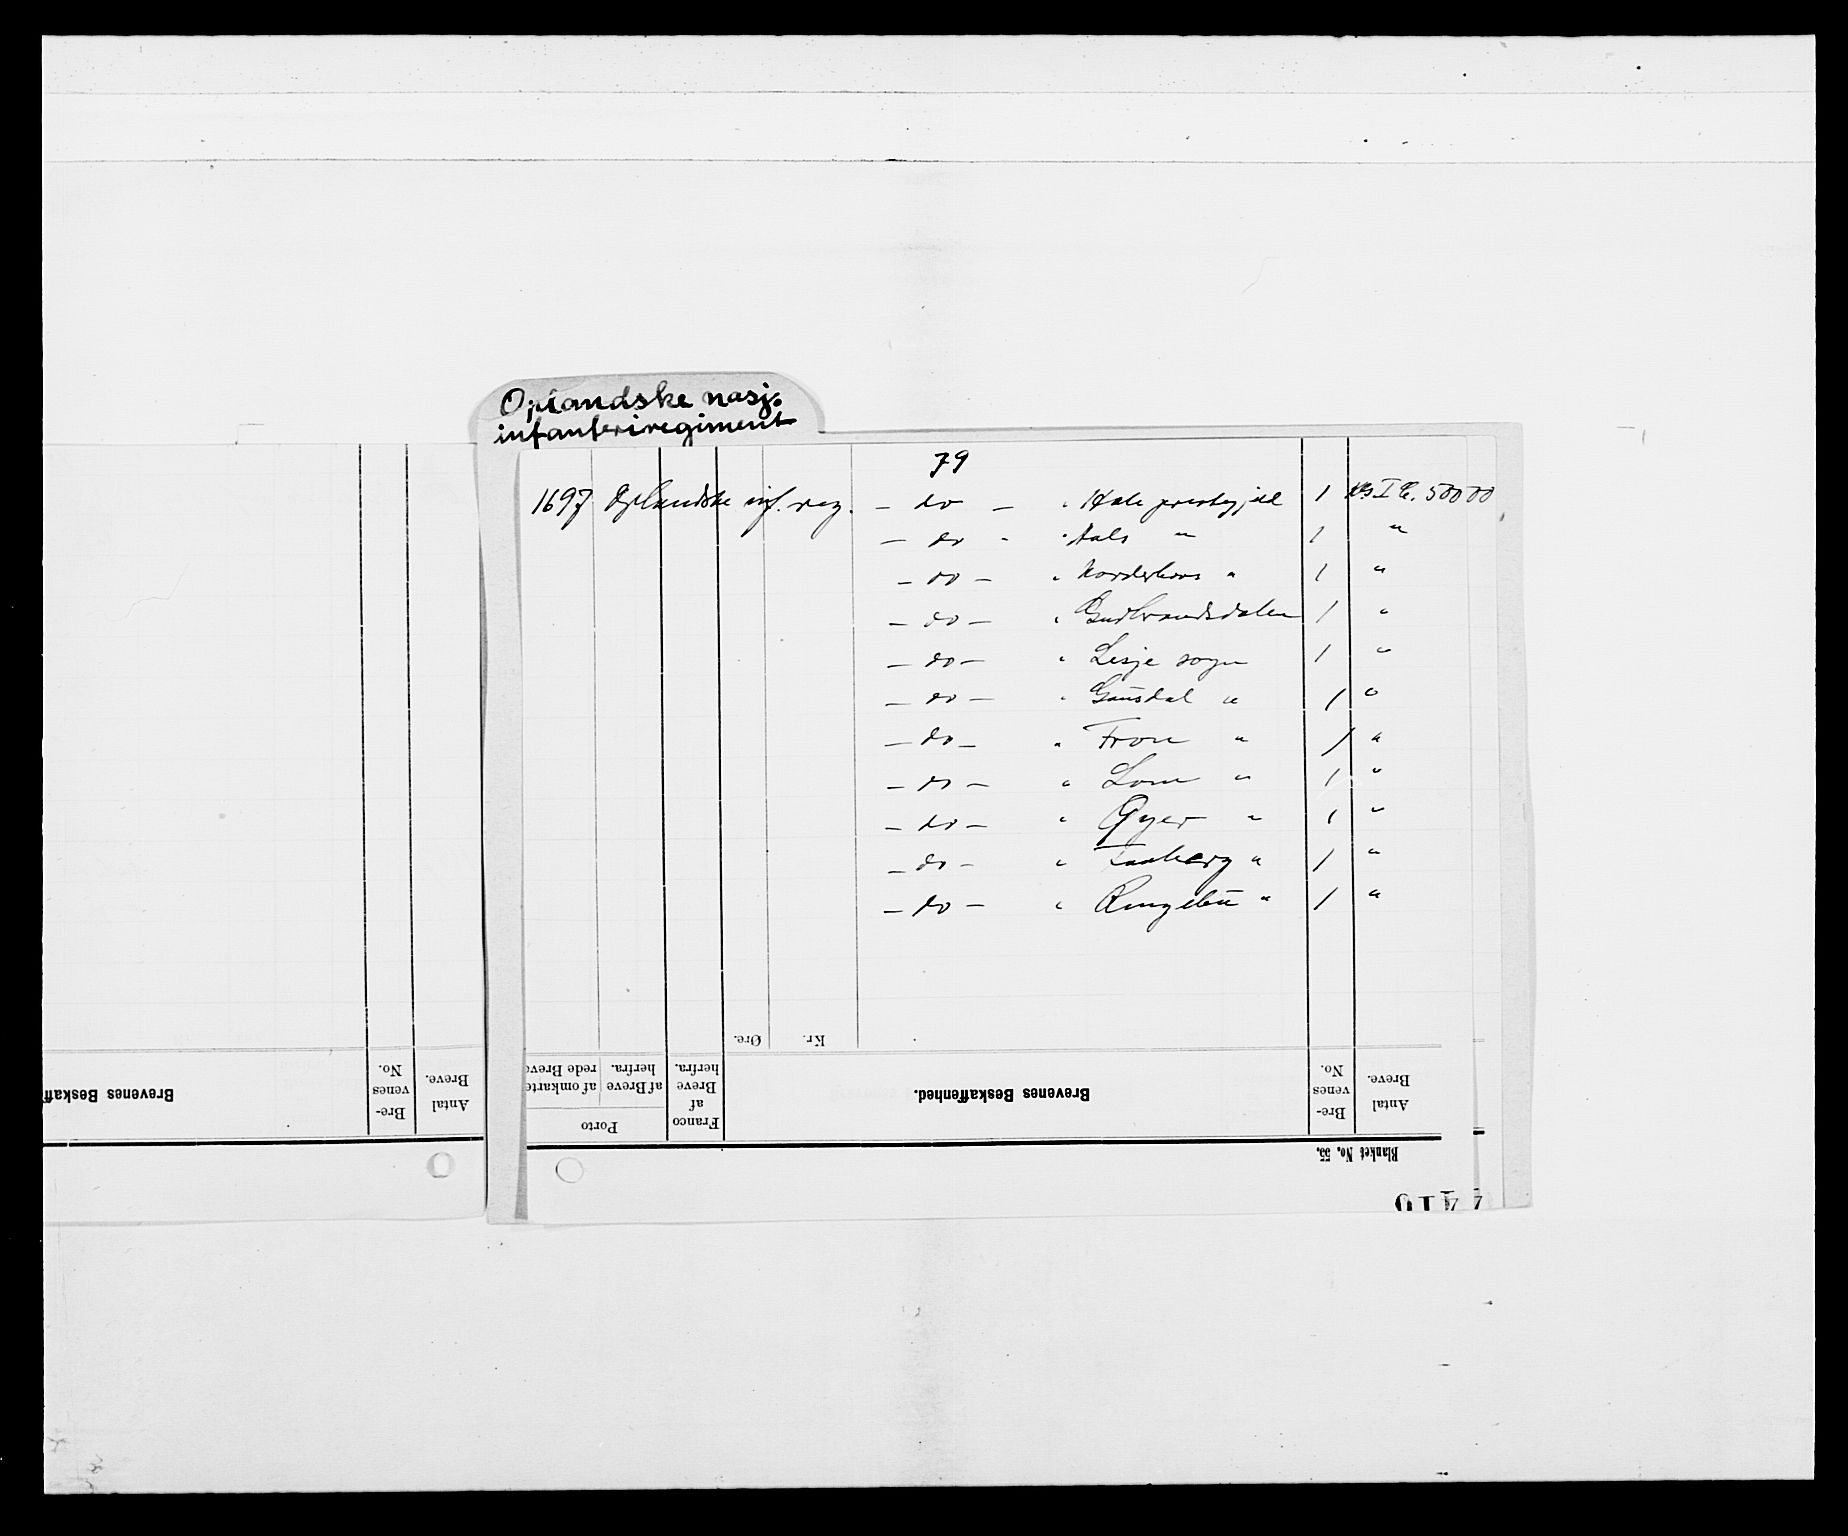 Oplandske nasj.
infanteriregiment
79
1697 Oplandske inf. reg. — do — " Hole prestegjeld 1 500 00
— do - " Aals " 1 "
— do — " Norderhovs " 1 "
— do — " Gudbrandsdalen 1 "
— do — " Lesje sogn 1 "
— do — " Gausdal " 1 "
— do — " Fron " 1 "
— do — " Lom " 1 "
— do — " Øyer " 1 "
— do — " Faaberg " 1 "
— do — " Ringebu " 1 "
Øre. Kr.
Blanket No. 55.
Antal Breve.
Bre-venes No.
Brevenes Beskaffenhed.
Franco af Breve herfra.
Porto
af Breve herfra.
af omkarte rede Breve
Antal Breve.
Bre-venes No.
Brevenes Beskaff